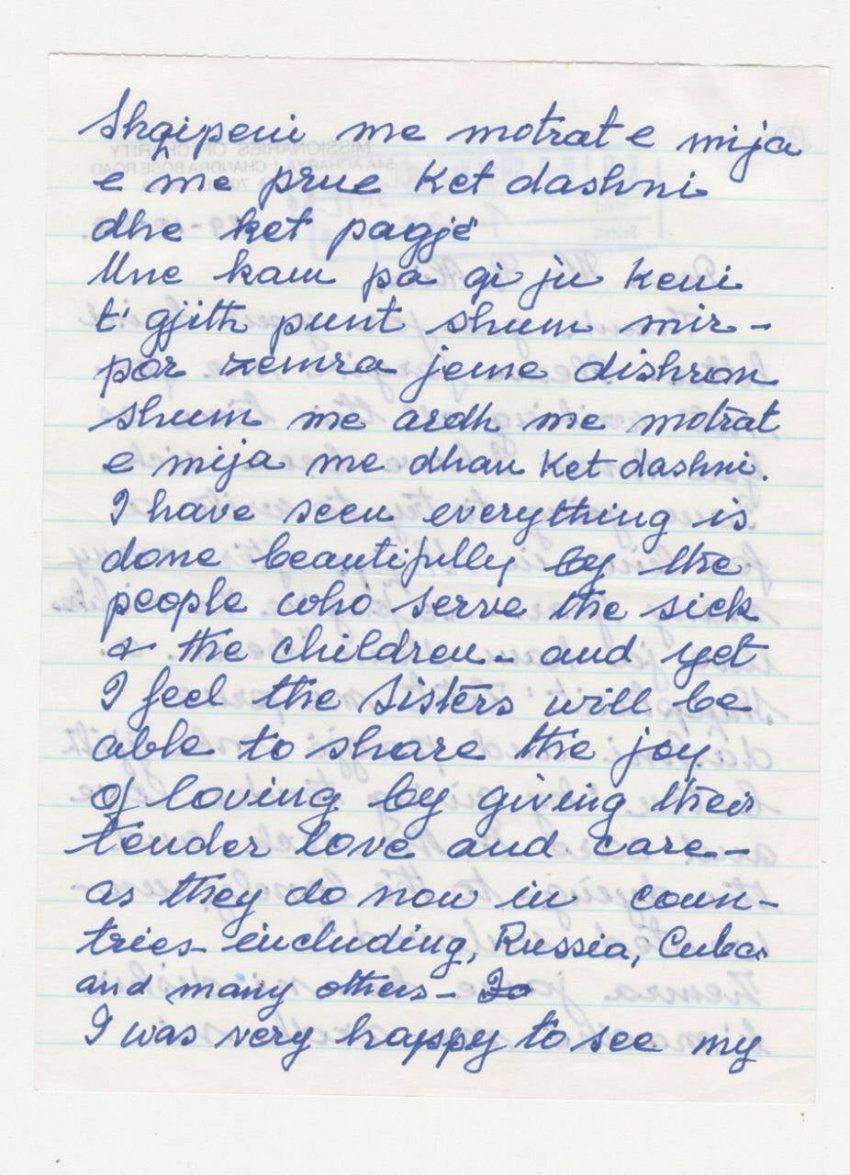 Shqipeni me motrat e mija
e me prue Ket dashni
dhe ket pagjë
Une kam pa qi ju Keni
t' gjith punt shum mir -
por zemra jeme dishron
shum me ardh me motrat
e mija me dhan Ket dashni.
I have seen everything is
done beautifully by the
people who serve the sick
& the children - and yet
I feel the Sisters will be
able to share the joy
of loving by giving their
tender love and care -
as they do now in coun-
tries including, Russia, Cuba
and many others -
I was very happy to see my
MISSIONARIES OF CHARITY
54A ACHARYA J. CHANDRA BOSE ROAD